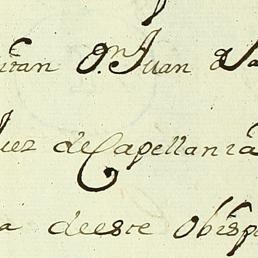 itan D.n Juan de Sa
Juez de Capellania
a deeste Obisp